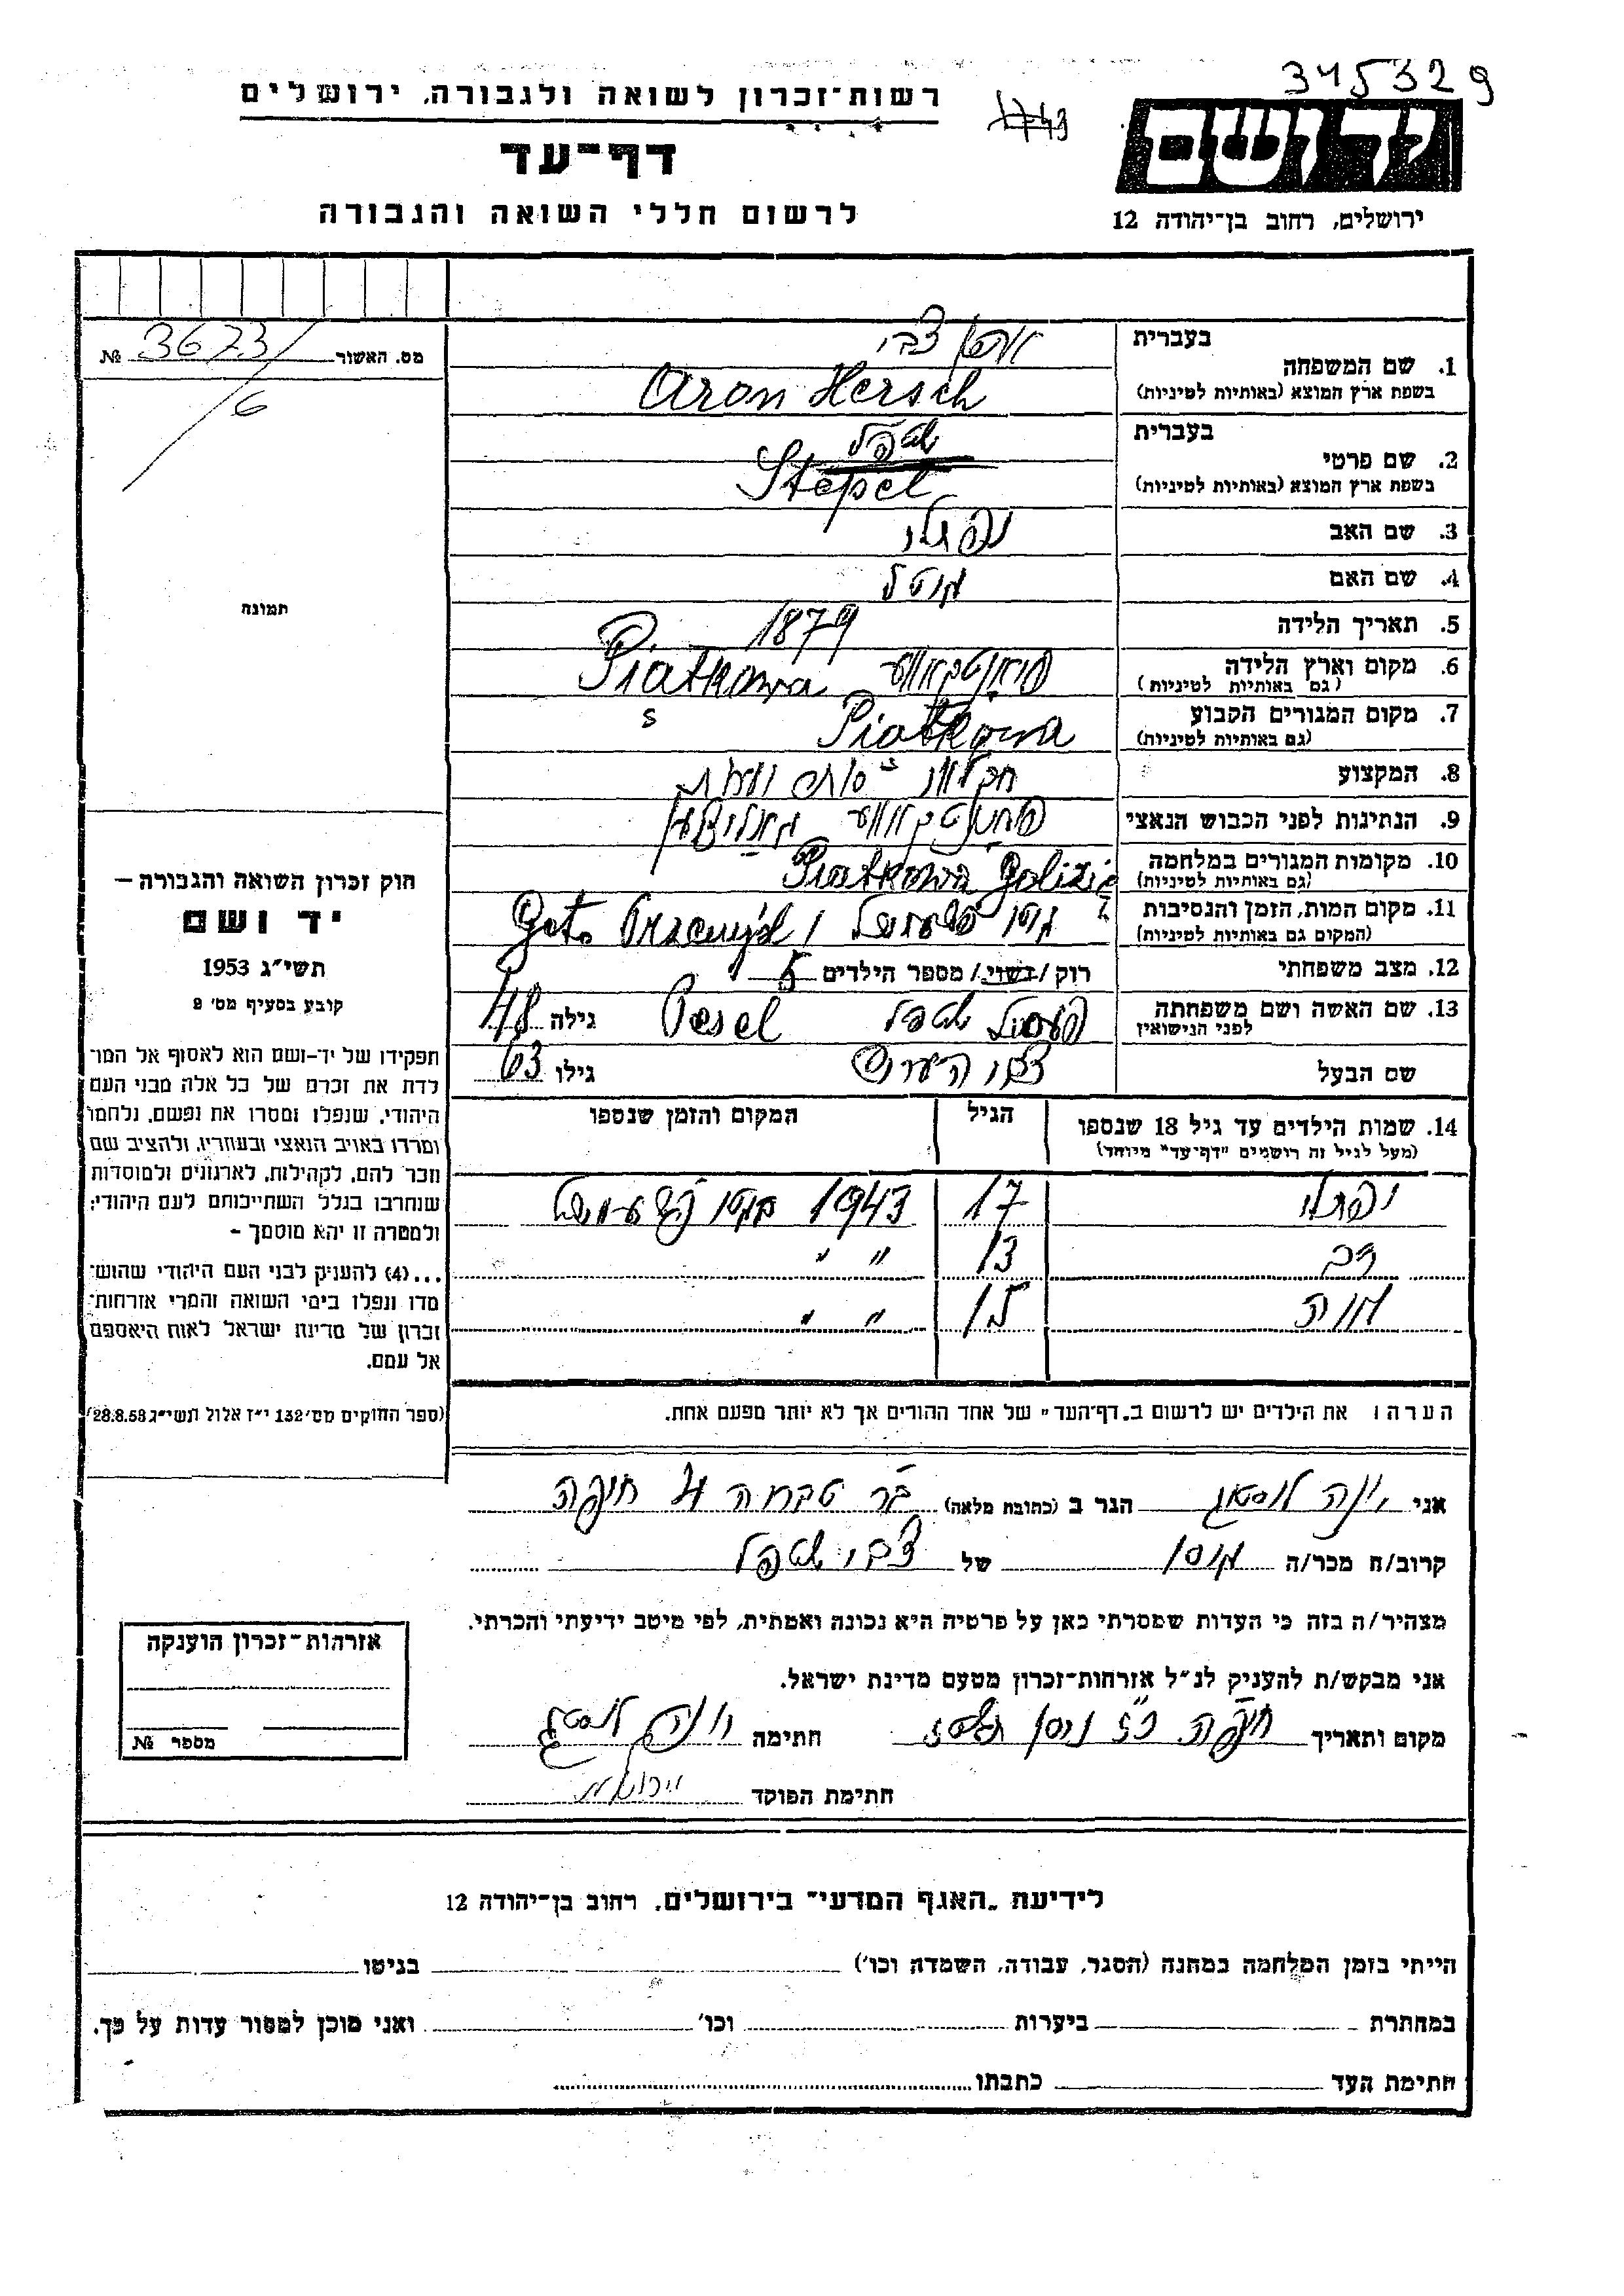 345329
רשות־זכרון לשואה ולגבורה, ירושלים
1743
דף־עד
יד ושם
לרשום חללי השואה והגבורה
ירושלים, רחוב בן־יהודה 12
מס. האשור 3673/ №
6
תמונה
בעברית
1. שם המשפחה
אהרן צבי
בשפת ארץ המוצא (באותיות לטיניות)
Aron Hersch
בעברית
2. שם פרטי
שטפל
בשפת ארץ המוצא (באותיות לטיניות)
Stepel
3. שם האב נפתלי
4. שם האם
5. תאריך הלידה 1879
6. מקום וארץ הלידה
(גם באותיות לטיניות)
Piatkowa
7. מקום המגורים הקבוע
(גם באותיות לטיניות)
Piatkowa
8. המקצוע
9. הנתינות לפני הכבוש הנאצי
10. מקומות המגורים במלחמה
(גם באותיות לטיניות)
Piatkowa Galizia
11. מקום המות, הזמן והנסיבות
(המקום גם באותיות לטיניות)
12. מצב משפחתי
רוק / נשוי / מספר הילדים 5
13. שם האשה ושם משפחתה
לפני הנישואין
שטפל Pesel גילה 48
שם הבעל צבי הערש גילו 63
14. שמות הילדים עד גיל 18 שנספו
(מעל לגיל זה רושמים "דף־עד" מיוחד)
הגיל
המקום והזמן שנספו
נפתלי 17 1943
13 " "
חוה 15 " "
הערה: את הילדים יש לרשום ב„דף־העד" של אחד ההורים אך לא יותר מפעם אחת.
חוק זכרון השואה והגבורה –
יד ושם
תשי״ג 1953
קובע בסעיף מס׳ 2
תפקידו של יד־ושם הוא לאסוף אל המו־
לדת את זכרם של כל אלה מבני העם
היהודי, שנפלו ומסרו את נפשם, נלחמו
ומרדו באויב הנאצי ובעוזריו, ולהציב שם
וזכר להם, לקהילות, לארגונים ולמוסדות
שנחרבו בגלל השתייכותם לעם היהודי;
ולמטרה זו יהא מוסמך –
...(4) להעניק לבני העם היהודי שהוש־
מדו ונפלו בימי השואה והמרי אזרחות־
זכרון של מדינת ישראל לאות היאספם
אל עמם.
(ספר החוקים מס׳ 132 י״ז אלול תשי״ג 28.8.53)
אני יונה לוסטיג הגר ב (כתובת מלאה) חיפה
קרוב/ה מכר/ה של צבי שטפל
מצהיר/ה בזה כי העדות שמסרתי כאן על פרטיה היא נכונה ואמתית, לפי מיטב ידיעתי והכרתי.
אני מבקש/ת להעניק לנ״ל אזרחות־זכרון מטעם מדינת ישראל.
מקום ותאריך חיפה כ״ז ניסן חתימה יונה לוסטיג
חתימת הפוקד
אזרחות־זכרון הוענקה
מספר №
לידיעת „האגף המדעי" בירושלים, רחוב בן־יהודה 12
הייתי בזמן המלחמה במחנה (הסגר, עבודה, השמדה וכו׳) בגיטו
במחתרת ביערות וכו׳ ואני מוכן למסור עדות על כך.
חתימת העד כתבתו